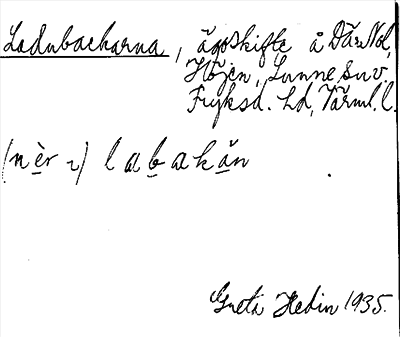 Ladubackarna, ägoskifte å Där Nol,
Höjen, Sunne sn v.
Fryksd. hd, Värml. l.
(nèr ı) labakăn
Greta Hedin 1935.